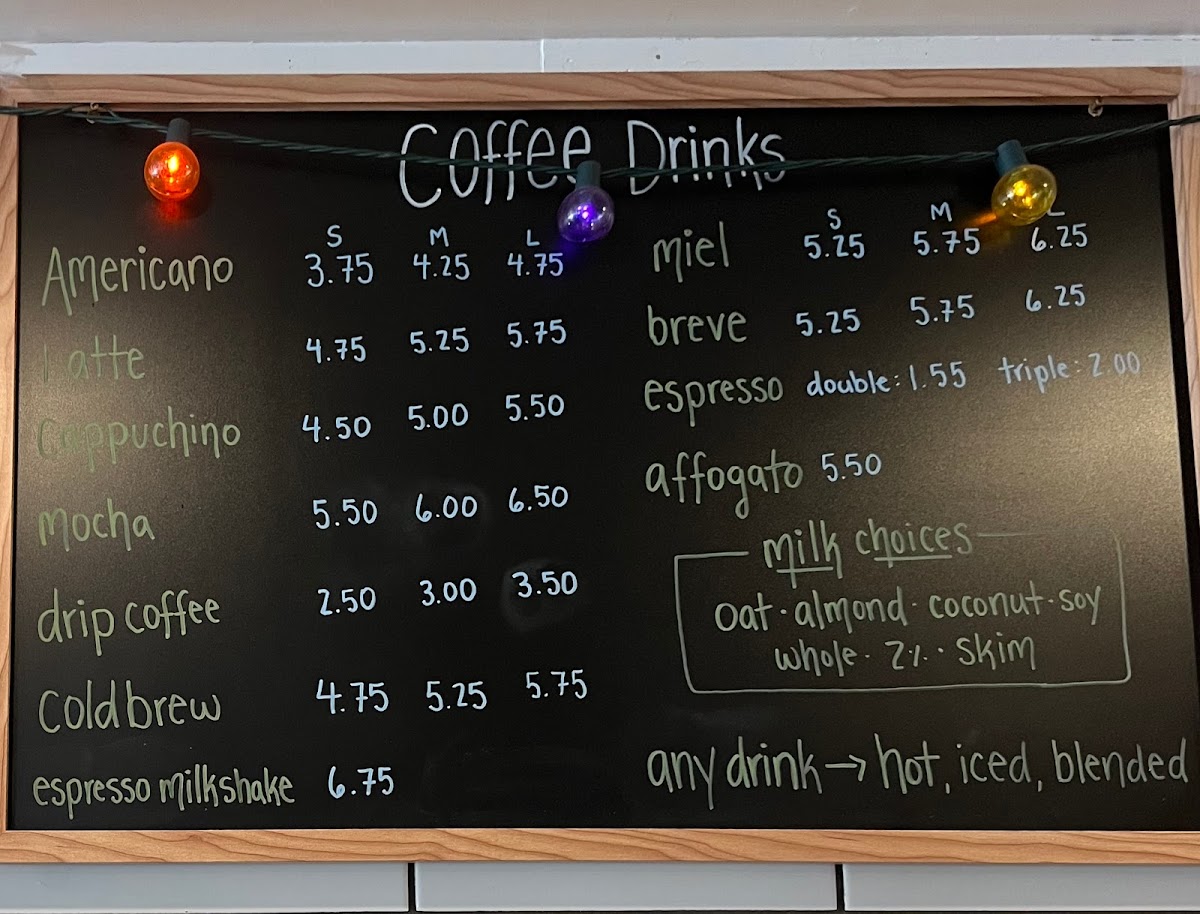 Coffee Drinks
S M L
Americano 3.75 4.25 4.75
Latte 4.75 5.25 5.75
Cappuchino 4.50 5.00 5.50
mocha 5.50 6.00 6.50
drip coffee 2.50 3.00 3.50
Cold brew 4.75 5.25 5.75
espresso milkshake 6.75
S M L
miel 5.25 5.75 6.25
breve 5.25 5.75 6.25
espresso double: 1.55 triple: 2.00
affogato 5.50
milk choices
oat · almond · coconut · soy
whole · 2% · skim
any drink → hot, iced, blended